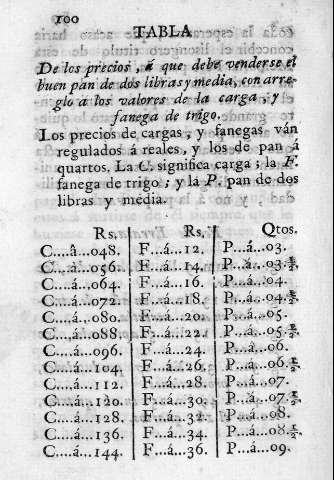 100
TABLA
De los precios, á que debe venderse el
buen pan de dos libras y media, con arre-
glo á los valores de la carga, y
fanega de trigo.
Los precios de cargas, y fanegas ván
regulados á reales, y los de pan á
quartos. La C. significa carga; la F.
fanega de trigo; y la P. pan de dos
libras y media.
Rs. Rs. Qtos.
C....á...048. F...á...12. P...á...03.
C....á...056. F...á...14. P...á...03.½.
C....á...064. F...á...16. P...á...04.
C....á...072. F...á...18. P...á...04.½.
C....á...080. F...á...20. P...á...05.
C....á...088. F...á...22. P...á...05.½.
C....á...096. F...á...24. P...á...06.
C....á...104. F...á...26. P...á...06.½.
C....á...112. F...á...28. P...á...07.
C....á...120. F...á...30. P...á...07.½.
C....á...128. F...á...32. P...á...08.
C....á...136. F...á...34. P...á...08.½.
C....á...144. F...á...36. P...á...09.